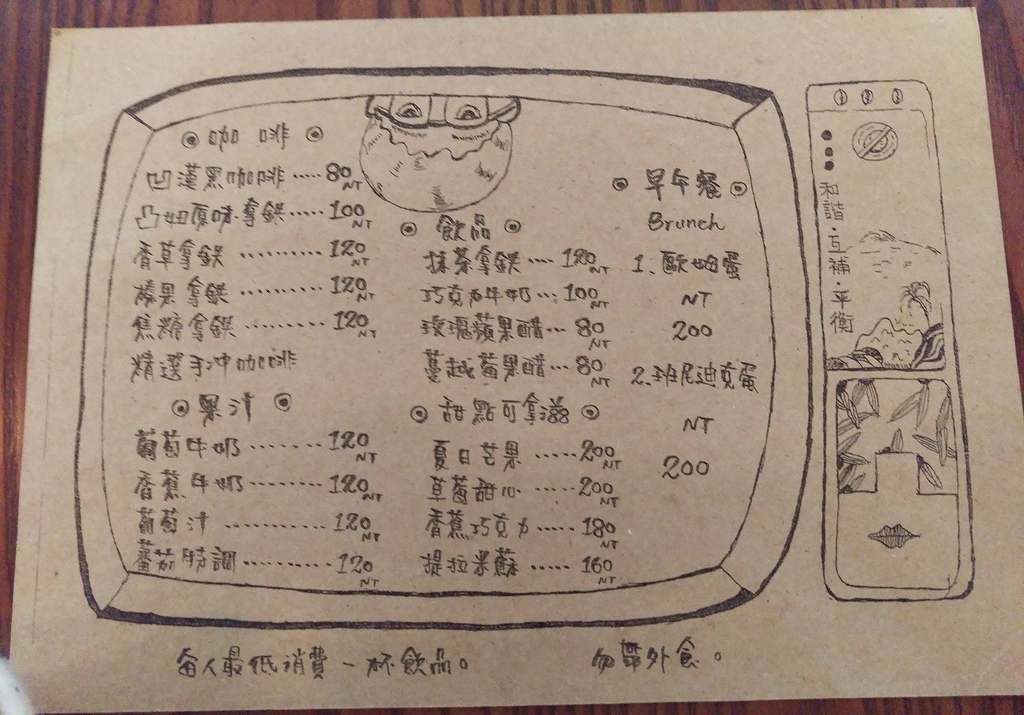 咖啡
凹漢黑咖啡 ..... 80 NT
凸妞原味拿鉄 ..... 100 NT
香草拿鉄 .......... 120 NT
榛果拿鉄 .......... 120 NT
焦糖拿鉄 .......... 120 NT
精選手冲咖啡
果汁
葡萄牛奶 ........ 120 NT
香蕉牛奶 ........ 120 NT
葡萄汁 .......... 120 NT
蕃茄特調 .......... 120 NT
飲品
抹茶拿鉄 .... 120 NT
巧克力牛奶 ... 100 NT
玫瑰蘋果醋 ... 80 NT
蔓越莓果醋 ... 80 NT
甜點可拿滋
夏日芒果 ..... 200 NT
草莓甜心 ..... 200 NT
香蕉巧克力 ..... 180 NT
提拉米蘇 ..... 160 NT
早午餐
Brunch
1、歐姆蛋
NT
200
2、班尼迪克蛋
NT
200
和諧·互補·平衡
每人最低消費一杯飲品。
勿帶外食。